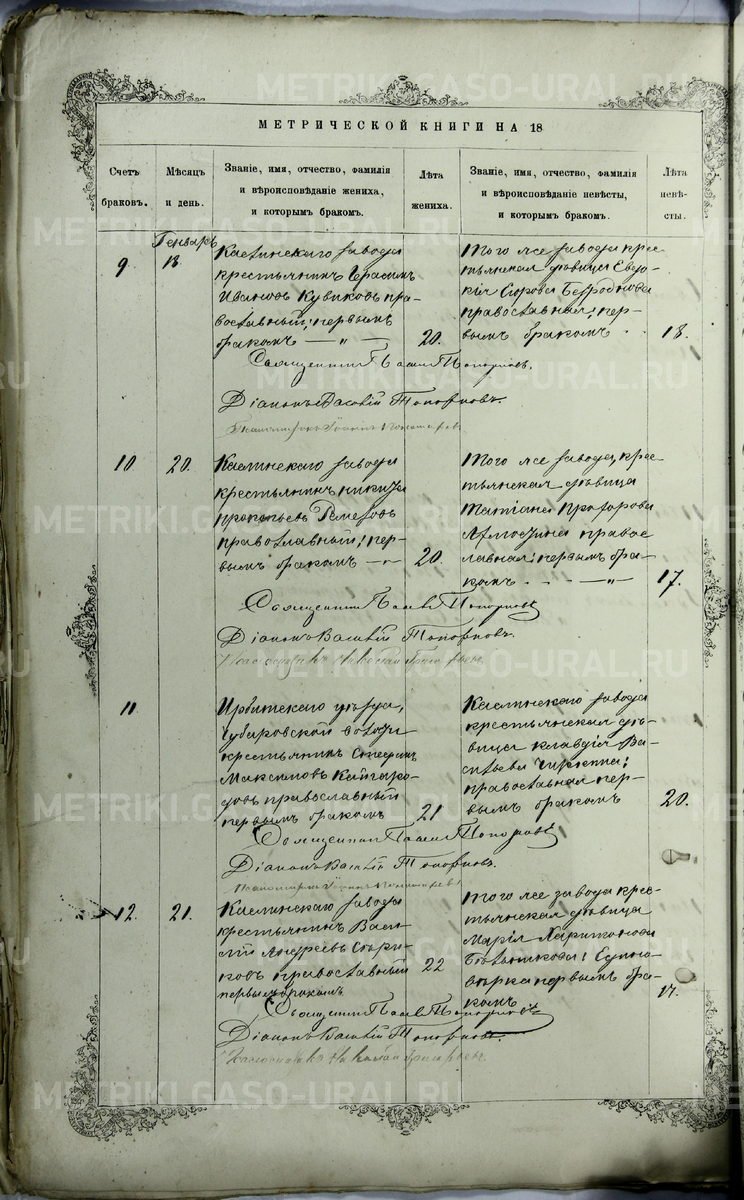 МЕТРИЧЕСКОЙ КНИГИ НА 18
Счетъ браковъ.
Мѣсяцъ и день.
Званіе, имя, отчество, фамилія
и вѣроисповѣданіе жениха,
и которымъ бракомъ.
Лѣта жениха.
Званіе, имя, отчество, фамилія
и вѣроисповѣданіе невѣсты,
и которымъ бракомъ.
Лѣта невѣсты.
Генварь
9
18
Каслинскаго завода
крестьянинъ Герасимъ
Ивановъ Куликовъ пра-
вославный; первымъ
бракомъ — „ —
20.
Того же завода крес-
тьянская дѣвица Евдо-
кія
православная; пер-
вымъ бракомъ
18.
Священникъ Павелъ Топорковъ.
Діаконъ Василій Топорковъ.
10
20.
Каслинскаго завода
крестьянинъ Никита
Прокопьевъ
православный; пер-
вымъ бракомъ — „ —
20.
Того же завода, крес-
тьянская дѣвица
Татіана Прохорова
правос
лавная; первымъ бра-
комъ - - - — „ —
17.
Священникъ Павелъ Топорковъ
Діаконъ Василій Топорковъ.
Псаломщикъ Николай Григорьевъ.
11
Ирбитскаго уѣзда,
Чубаровской волости
крестьянинъ Стефанъ
Максимовъ Кайгоро-
довъ православный
первымъ бракомъ
21
Каслинскаго завода
крестьянская дѣ-
вица Клавдія Ва-
сильева Чиркина;
православная пер-
вымъ бракомъ
20.
Священникъ Павелъ Топорковъ
Діаконъ Василій Топорковъ.
12.
21.
Каслинскаго завода
крестьянинъ Васи-
лій Андреевъ
православный
первымъ бракомъ
22
Того же завода крес-
тьянская дѣвица
Марія Харитонова
Едино-
вѣрка первымъ бра-
комъ
17.
Священникъ Павелъ Топорковъ
Діаконъ Василій Топорковъ.
Псаломщикъ Николай Григорьевъ.
METRIKI.GASO-URAL.RU